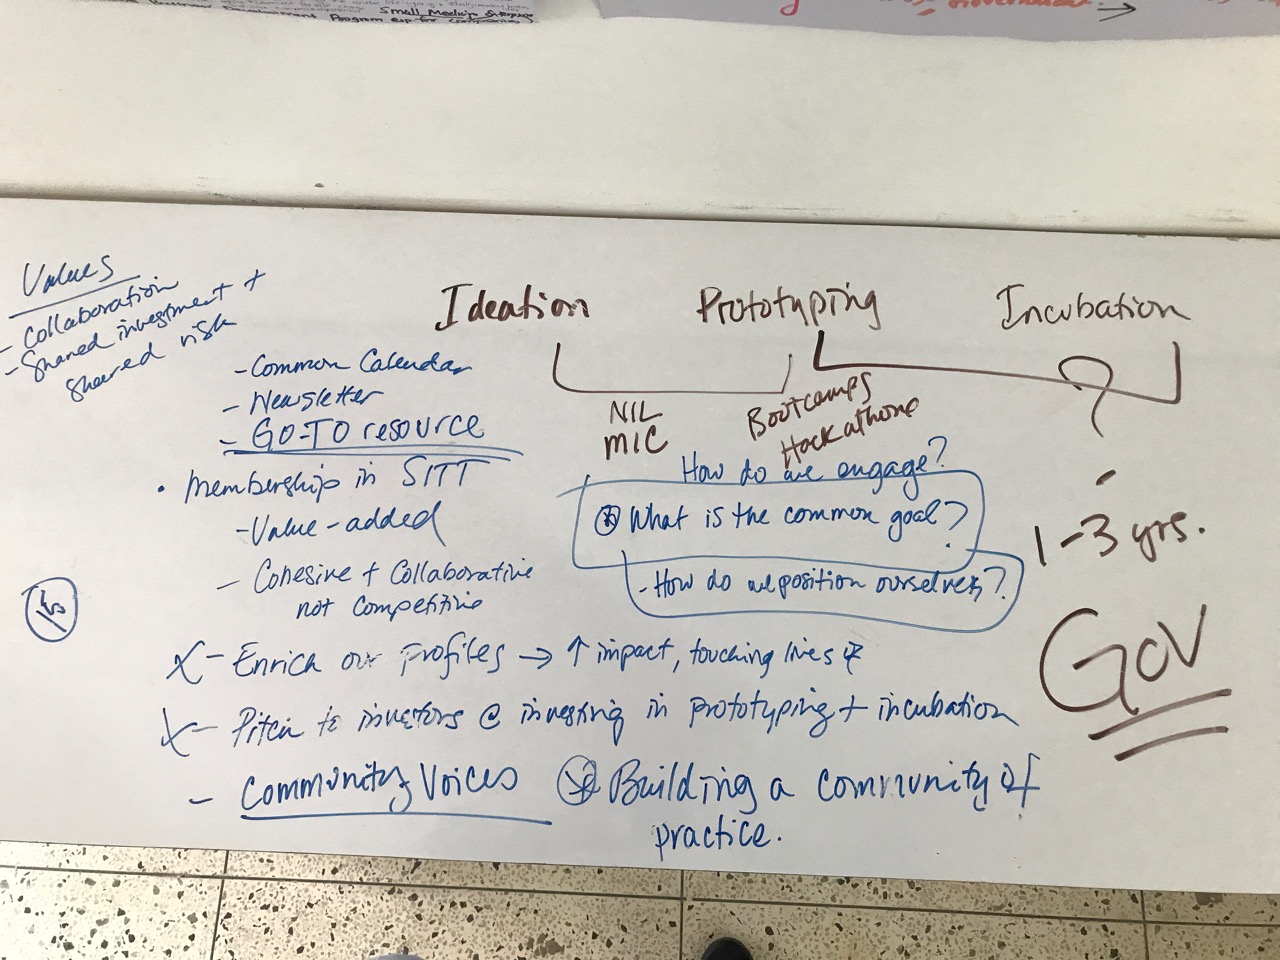 Small Medium Enterprises
Program exp for companies
Values
- Collaboration
- Shared investment +
shared risk
Ideation Prototyping Incubation
- Common Calendar
- Newsletter
- GO-TO resource
NIL
MIC
Bootcamps
Hackathons
?
1-3 yrs.
Gov
• Membership in SITT
- Value-added
- Cohesive + Collaborative
not competitive
How do we engage?
What is the common goal?
- How do we position ourselves?
15
X - Enrich our profiles → ↑ impact, touching lives
X - Pitch to investors @ investing in prototyping + incubation
- Community Voices
Building a community of
practice.